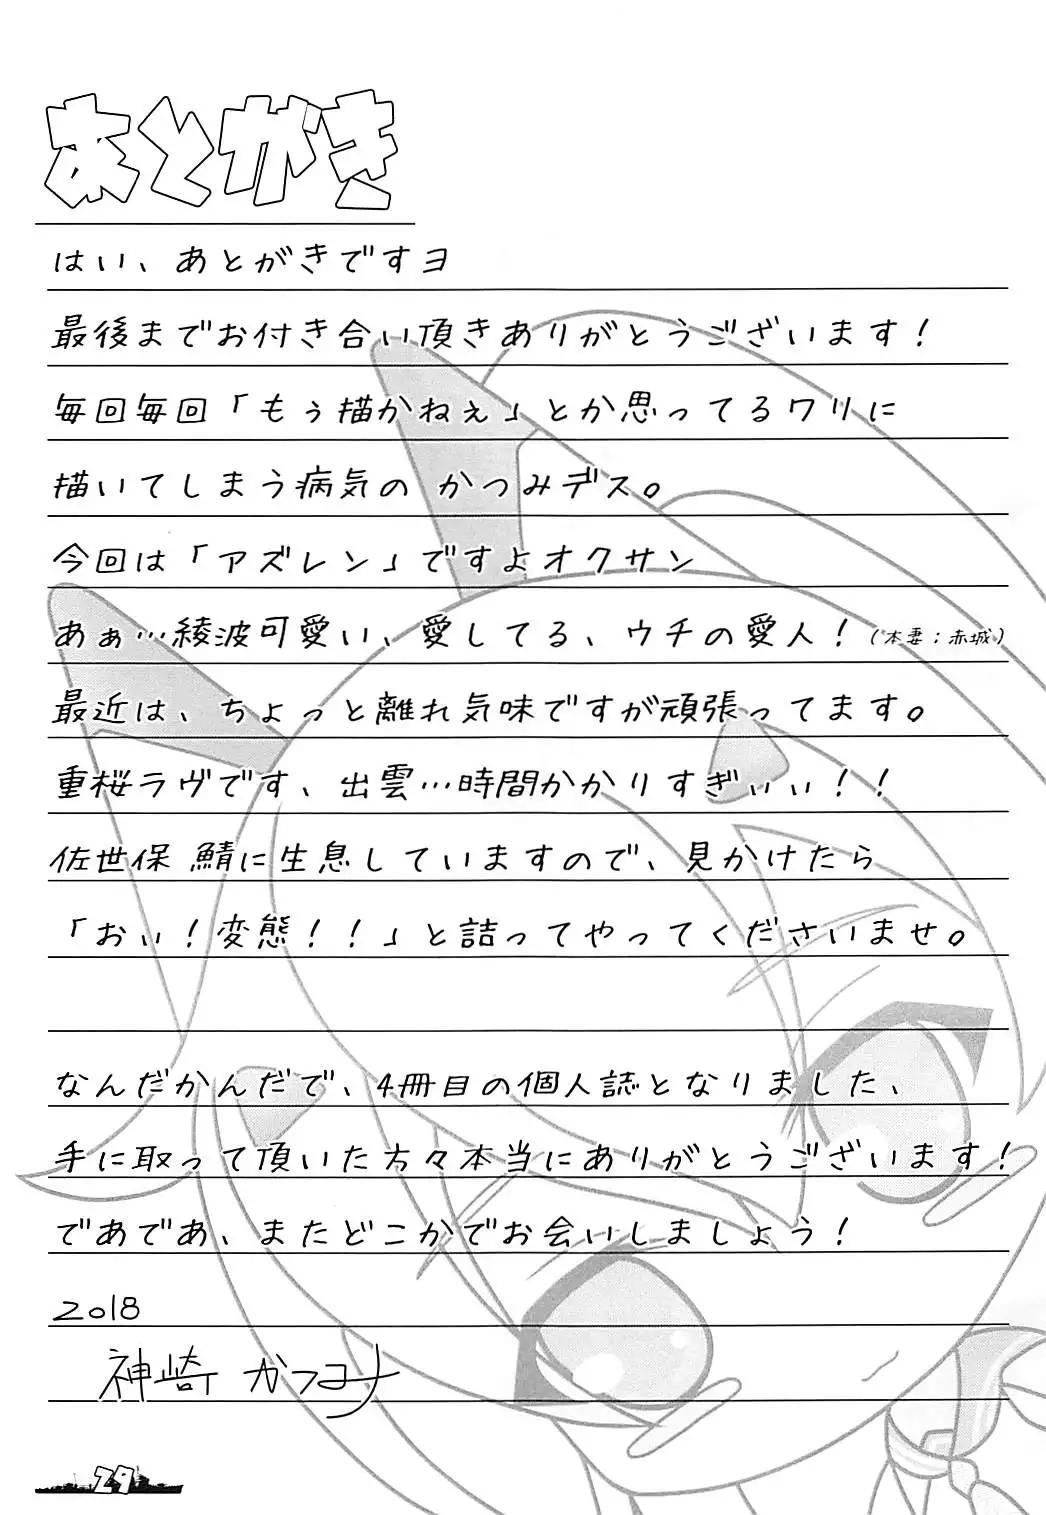 あとがき
はい、あとがきですヨ
最後までお付き合い頂きありがとうございます！
毎回毎回「もぅ描かねぇ」とか思ってるワリに
描いてしまう病気の かつみデス。
今回は「アズレン」ですよオクサン
あぁ…綾波可愛い、愛してる、ウチの愛人！（本妻：赤城）
最近は、ちょっと離れ気味ですが頑張ってます。
重桜ラヴです、出雲…時間かかりすぎぃぃ！！
佐世保 鯖に生息していますので、見かけたら
「おぃ！変態！！」と詰ってやってくださいませ。
なんだかんだで、4冊目の個人誌となりました、
手に取って頂いた方々本当にありがとうございます！
であであ、またどこかでお会いしましょう！
2018
神崎 かつみ
29